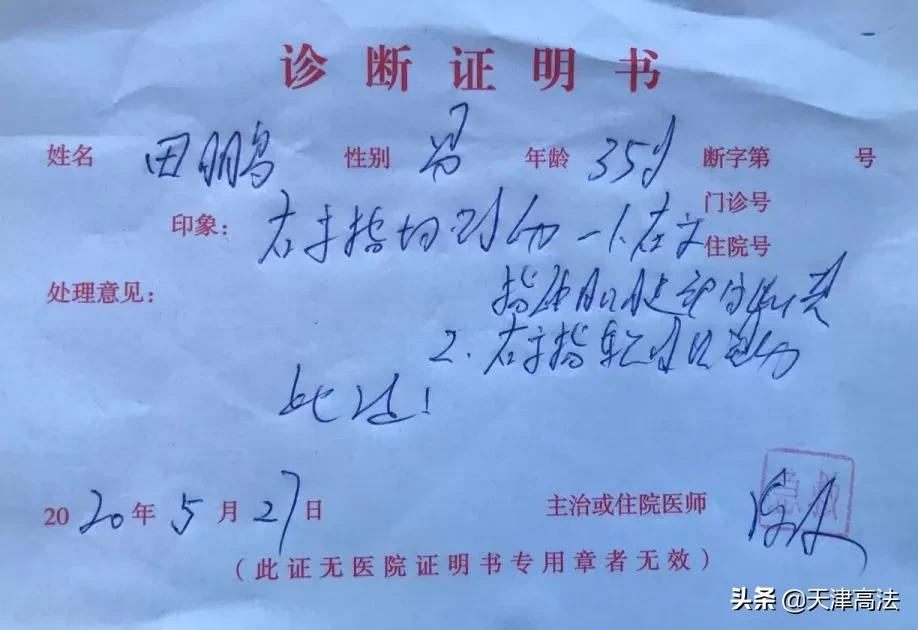 诊断证明书
姓名 田鹏 性别 男 年龄 35岁 断字第 号
门诊号
印象： 右手指切割伤 1. 右
住院号
处理意见： 指
2. 右手指软组织
此证！
2020年5月27日 主治或住院医师
（此证无医院证明书专用章者无效）
头条 @天津高法